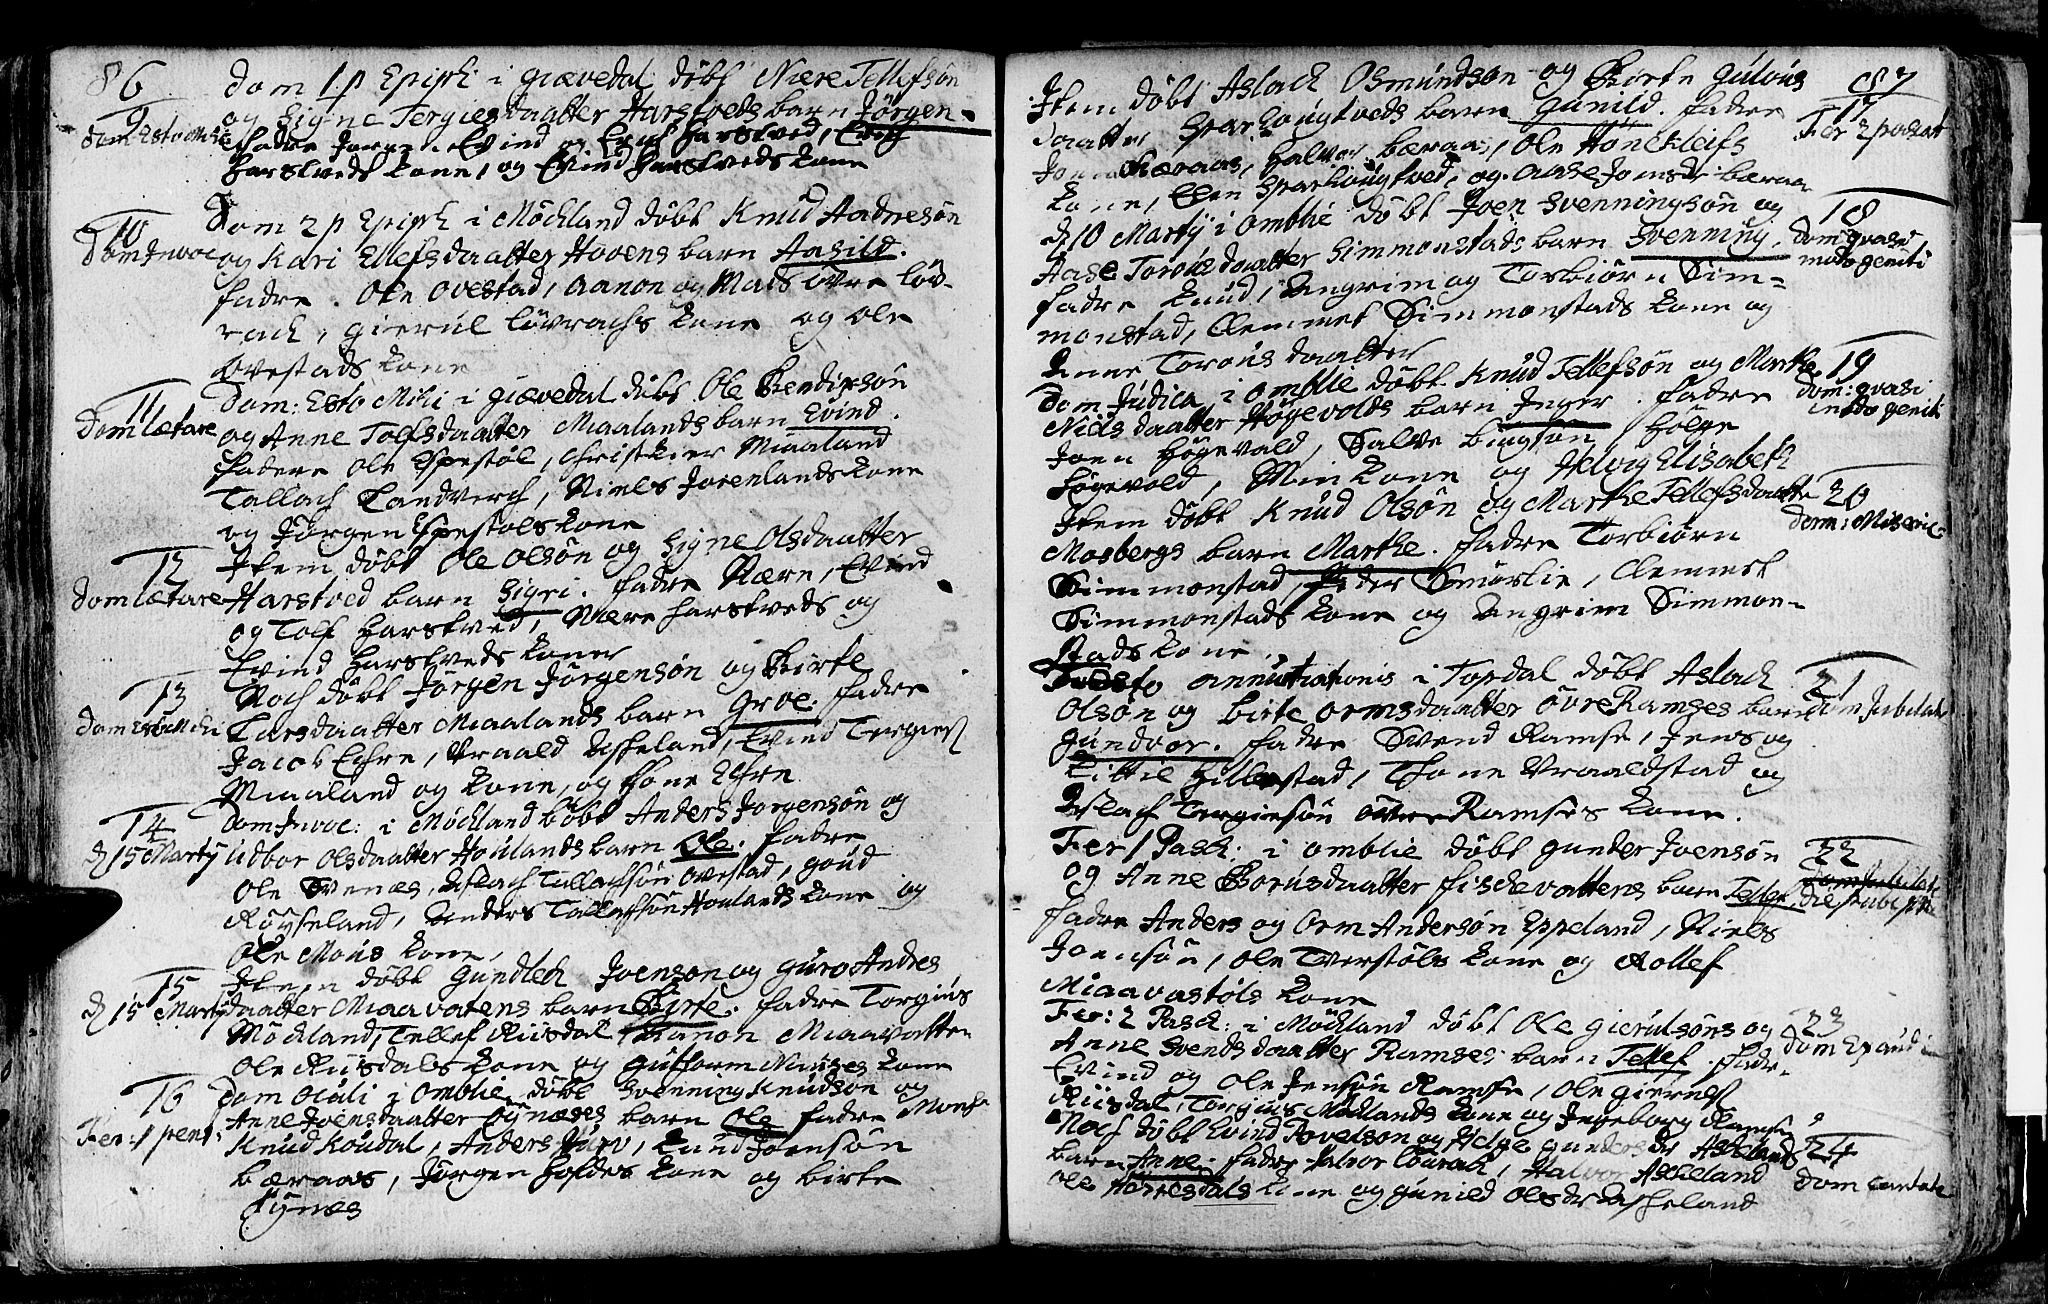 86
9
Dom Esto Mihi
Dom 1 p Epiph i giævedal döbt Nære Tellefsön
og Signe Tergiesdaatter Harstveds barn Jörgen
fadre Jörgen, Evind og harstved,
harstveds kone, og Evind harstveds kone
10
Dom Invoc
Dom 2 p Epiph i Möckland döbt Knud Aadnesön
og Kari Ellefsdaatter Hovens barn Aasild.
fadre. Ole Ovestad, Aanon og Mads övre löv-
rach, gierul lövrachs kone og Ole
Ovestads kone
11
Dom lætare
Dom: Esto Mihi i giævedal döbt Ole Bendixsön
og Anne Tolfsdaatter Miaalands barn Evind.
fadere Ole Espestöl, Miaaland
Tallach Landverch, Niels Jorenlands kone
og Jörgen Espestöls kone
12
Dom lætare
Item döbt Ole Olsön og Signe Olsdaatter
Harstved barn Sigri. fadre Nære, Evind
og Tolf Harstved, Nære harstveds og
Evind harstveds koner
13
Dom Esto Mihi
Noch döbt Jörgen Jörgensön og Birte
Larsdaatter Miaalands barn Groe. fadre
Jacob Echre, Vraald Askeland, Evind Tergiess
Miaaland og kone, og Tone Echre
14
d 15 Martij
Dom Invoc: i Möckland döbt Anders Jörgensön og
Udbor Olsdaatter Houlands barn Ole. fadre
Ole Tvenæs, Aslach Tallachsön Ovestad, goud
Röyseland, Anders Tallachsön Houlands kone og
Ole Mous kone,
15
d 15 Martij
Item döbt Gundlech Joensön og guro Andres
daatter Miaavatens barn Birte. fadre Torgius
Möckland, Tellef Riisdal, Aanon Miaavatten
Ole Riisdals kone og guttorm Nusses kone
16
Fer: 1 pent:
Dom Oculi i Omblie döbt Svenning Knudsön og
Anne Joensdaatter Synæses barn Ole fadre
Knud Koudal, Anders, Knud Joensön
bæraas, Jörgen holdes kone og birte
Synæs
87
17
Fer 2 pasch
Item döbt Aslach Osmundsön og Birte gulovs
daatter Sparsougtveds barn Gunild. fadre
Bæraas, halvor bæraas, Ole Hönekleifs
kone, Elen Sparsougtved, og Aase Joensdr bæraas
18
Dom: qvasi
modogeniti
d 10 Martij i Omblie döbt Joen Svenningsön og
Aase Torousdaatter Simmonstads barn Svenning,
fadre Knud, Angrim og Torbiörn Sim-
monstad, Clemmet Simmonstads kone og
Anne Torousdaatter
19
Dom: qvasi
modogeniti
Dom Judica, i Omblie döbt Knud Tellefsön og Marthe
Nielsdaatter Högevolds barn Inger. fadre
Joen Högevold, Salve, Hölge
högevold, Min kone og Helvig Elisabeth
20
Dom: Miseric:
Item döbt Knud Olsön og Marthe Tellefsdaatter
Mosbergs barn Marthe. fadre Torbiörn
Simmonstad, Peder Smörlie, Clemmet
Simmonstads kone og Angrim Simmon-
stads kone.
21
Dom Jubilate
Festo Annutiationis i Topdal döbt Aslach
Olsön og Birte Ormsdaatter övre Ramses barn
Gundvor. fadre Svend Ramse, Jens og
Kittil Hillestad, Thone Vraaldstad og
Aslach Tergiesön övre Ramses kone.
22
Dom Jubilate
Fer 1 Pasch. i Omblie döbt gunder Joensön
og Anne Borusdaatter fischevattens barn Tellef
fadre Anders og Orm Andersön Eppeland, Niels
Joensön, Ole Tverstöls kone og Rollef
Miaavastöls kone
23
Dom Exaudi
Fer: 2 Pasch: i Möckland döbt Ole gierulsöns og
Anne Svendsdaatter Ramses barn Tellef. fadre
Evind og Ole Jensön Ramse, Ole
Riisdal, Torgius Möcklands kone og Ingeborg Ramse
24
Dom Cantate
Noch döbt Evind Povelsön og Helge gundersdr Askeland
barn Anne. fadre halvor, Halvor Askeland
Ole kone og gunild Olsdr Askeland